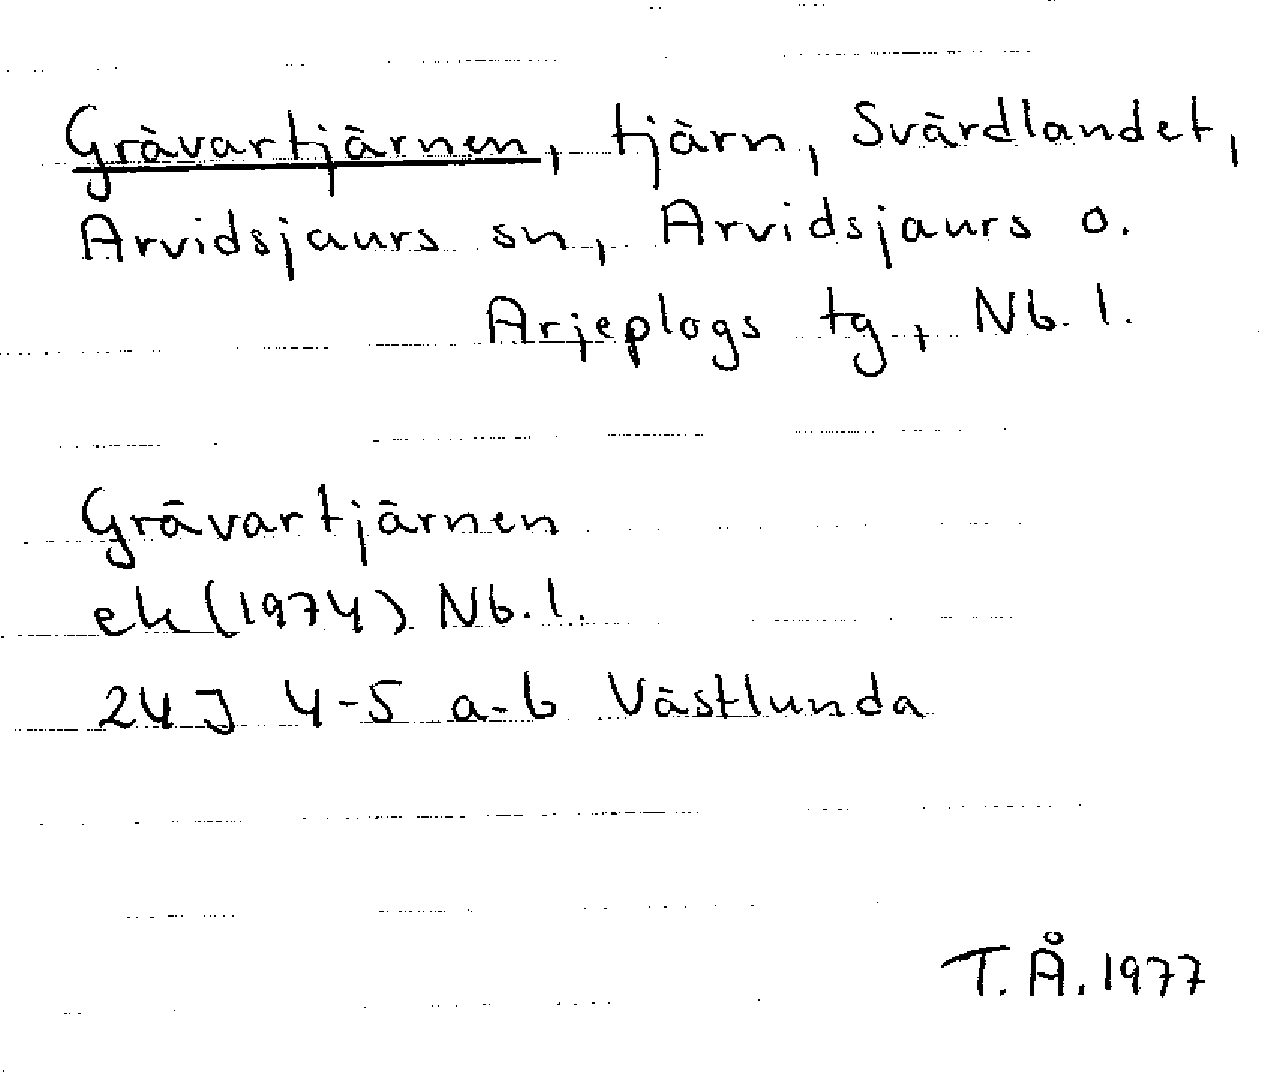 Grävartjärnen, tjärn, Svärdlandet,
Arvidsjaurs sn, Arvidsjaurs o.
Arjeplogs tg, Nb. l.
Grävartjärnen
ek (1974) Nb. l.
24J 4-5 a-b Västlunda
T. Å. 1977